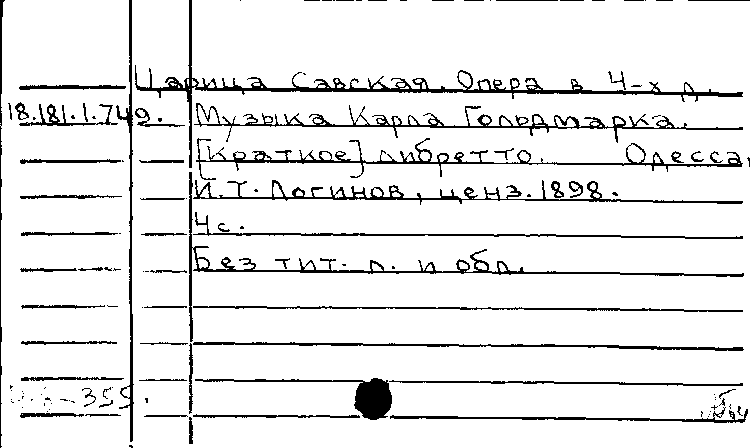 Царица Савская. Опера в 4-х д.
18.181.1.749. Музыка Карла Гольдмарка.
[Краткое] либретто. Одесса,
И.Т. Логинов, ценз. 1898.
4 с.
Без тит. л. и обл.
355.